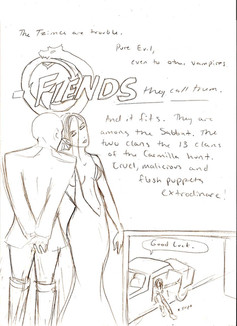 The Tzimisce are trouble.
Pure Evil,
even to other vampires.
FIENDS they call them.
And it fits. They are
among the Sabbat. The
two clans the 13 clans
of the Camarilla hunt.
Cruel, malicious and
flesh puppets
Extrodinare!
Good Luck.